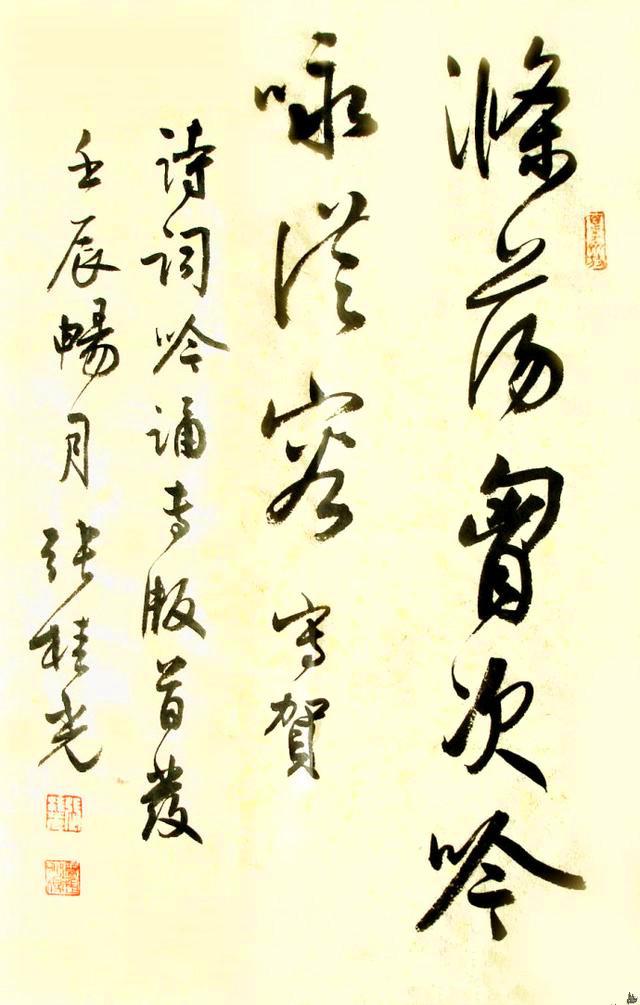 滌蕩胷次吟
咏從容 寫賀
詩詞吟誦專版首發
壬辰暢月 張桂光